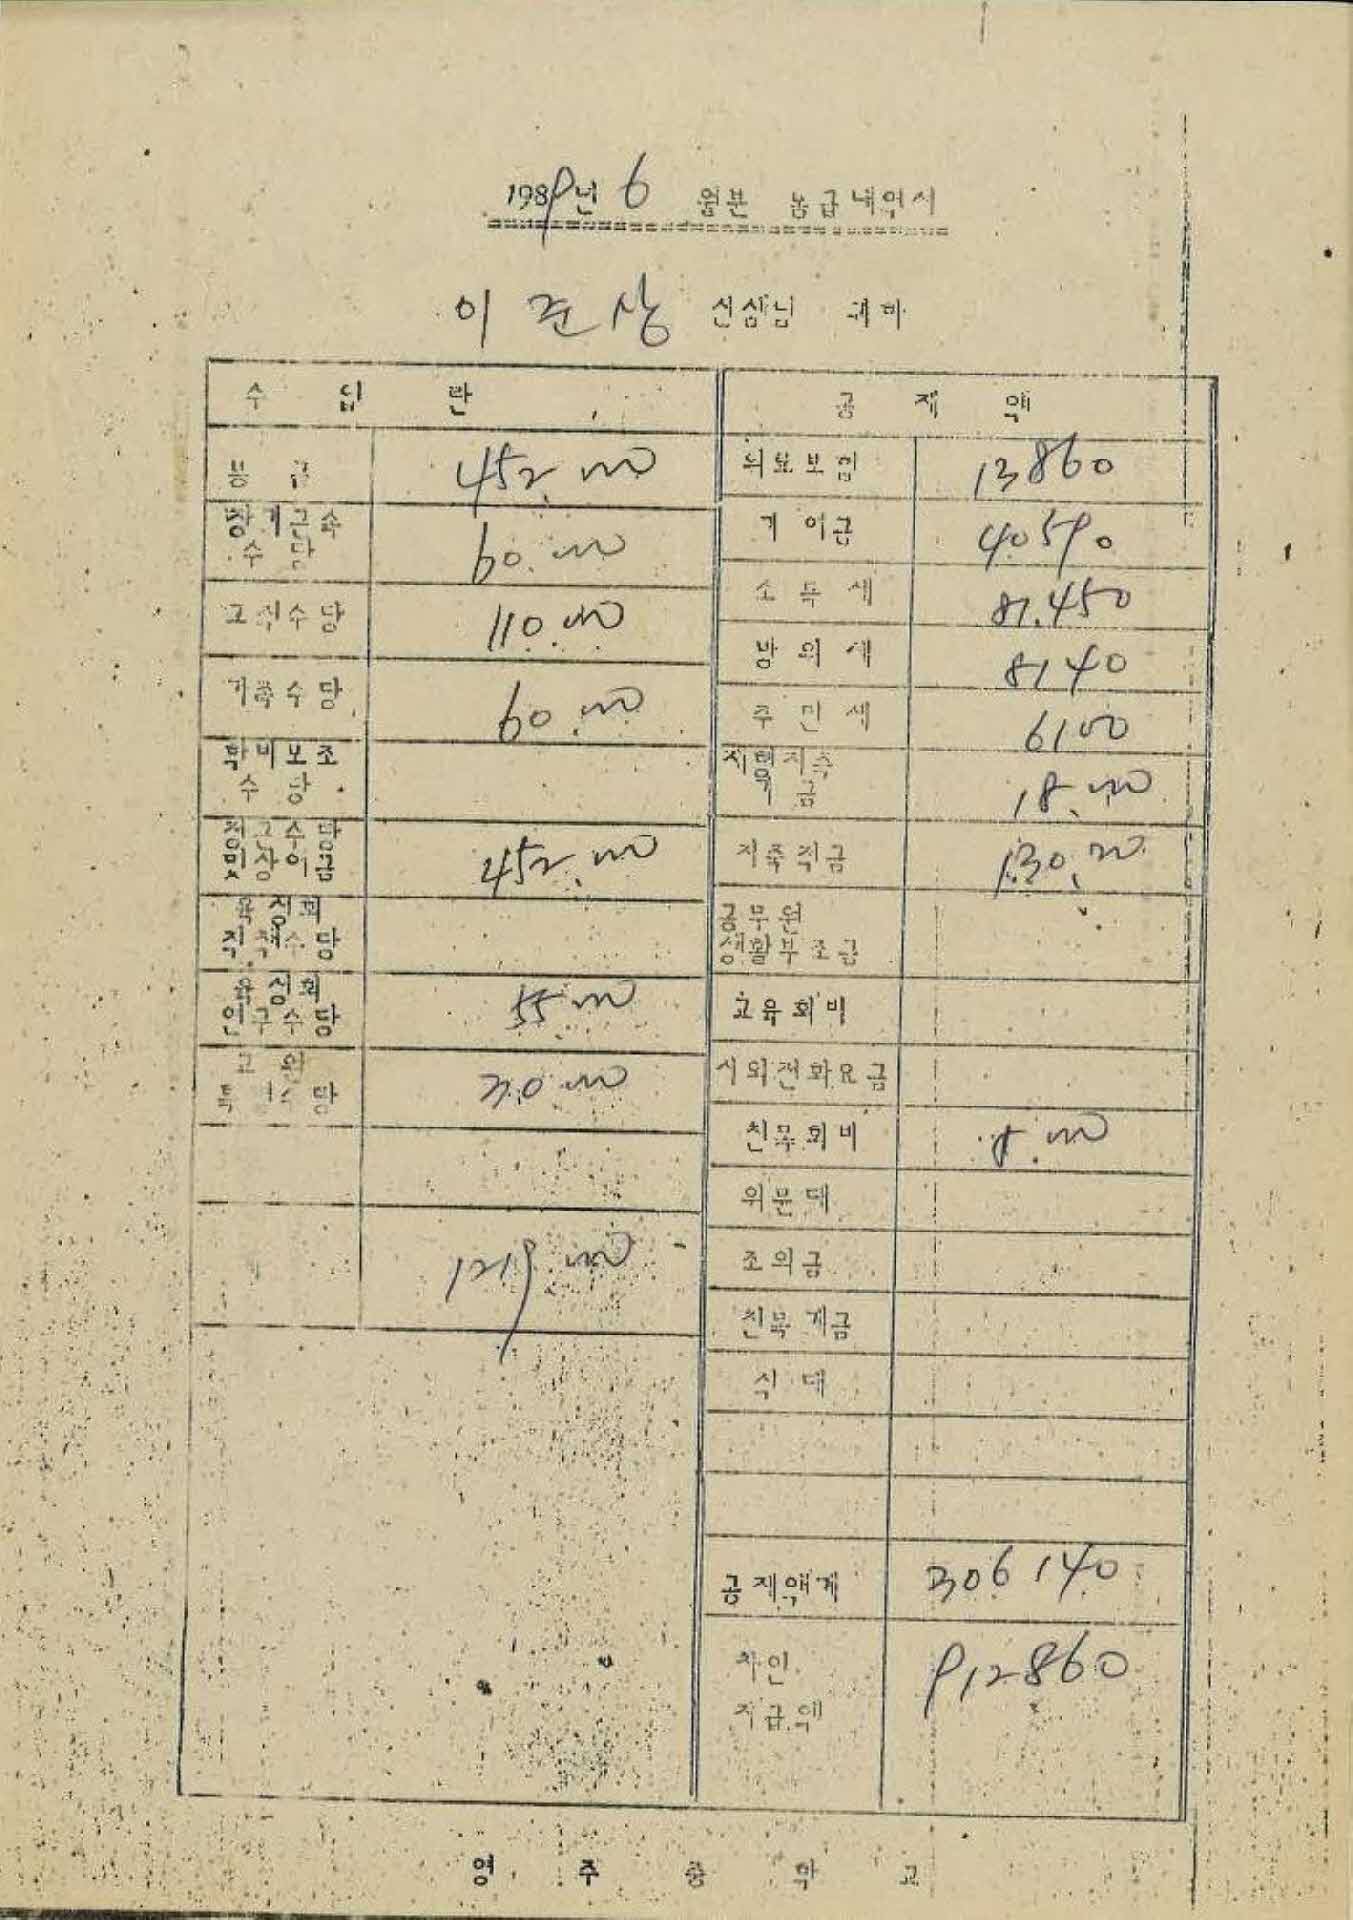 1989년 6 월분 봉급내역서
이준상 선생님 귀하
수 입 란
공 제 액
봉 급 452.000
의료보험 13860
장기근속
수 당 60.000
기여금 40590
교직수당 110.000
소득세 81.450
가족수당 60.000
방위세 8140
학비보조
수 당
주민세 6100
정근수당
및상여금 452.000
18.000
육성회
직책수당
130.000
육성회
연구수당 55.000
공무원
생활부조금
교원 30.000
교육회비
시외전화요금
친목회비 8.000
위문대
1219.000
조의금
친목계금
식대
공제액계 306140
차인
지급액 912860
영주중학교